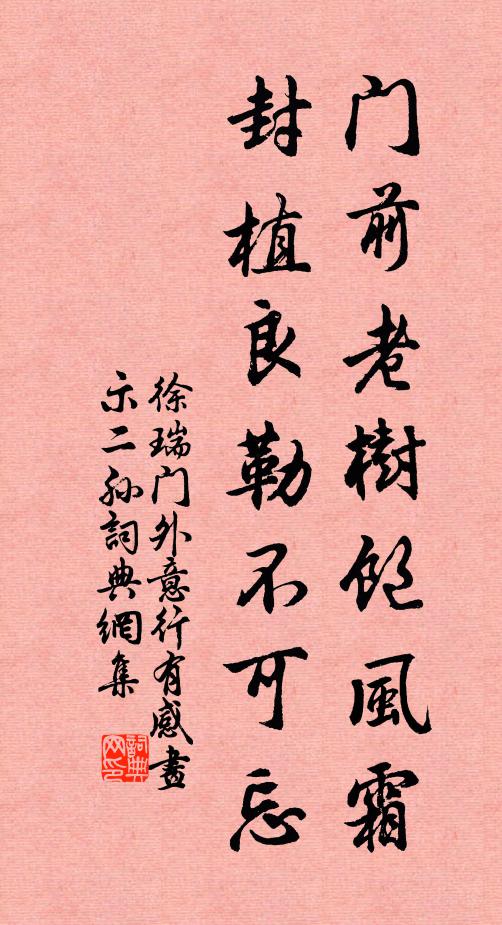 门前老樹飽風霜
封植良勤不可忘
徐瑞门外意行有感畫
示二孙詞典網集
詞典网印